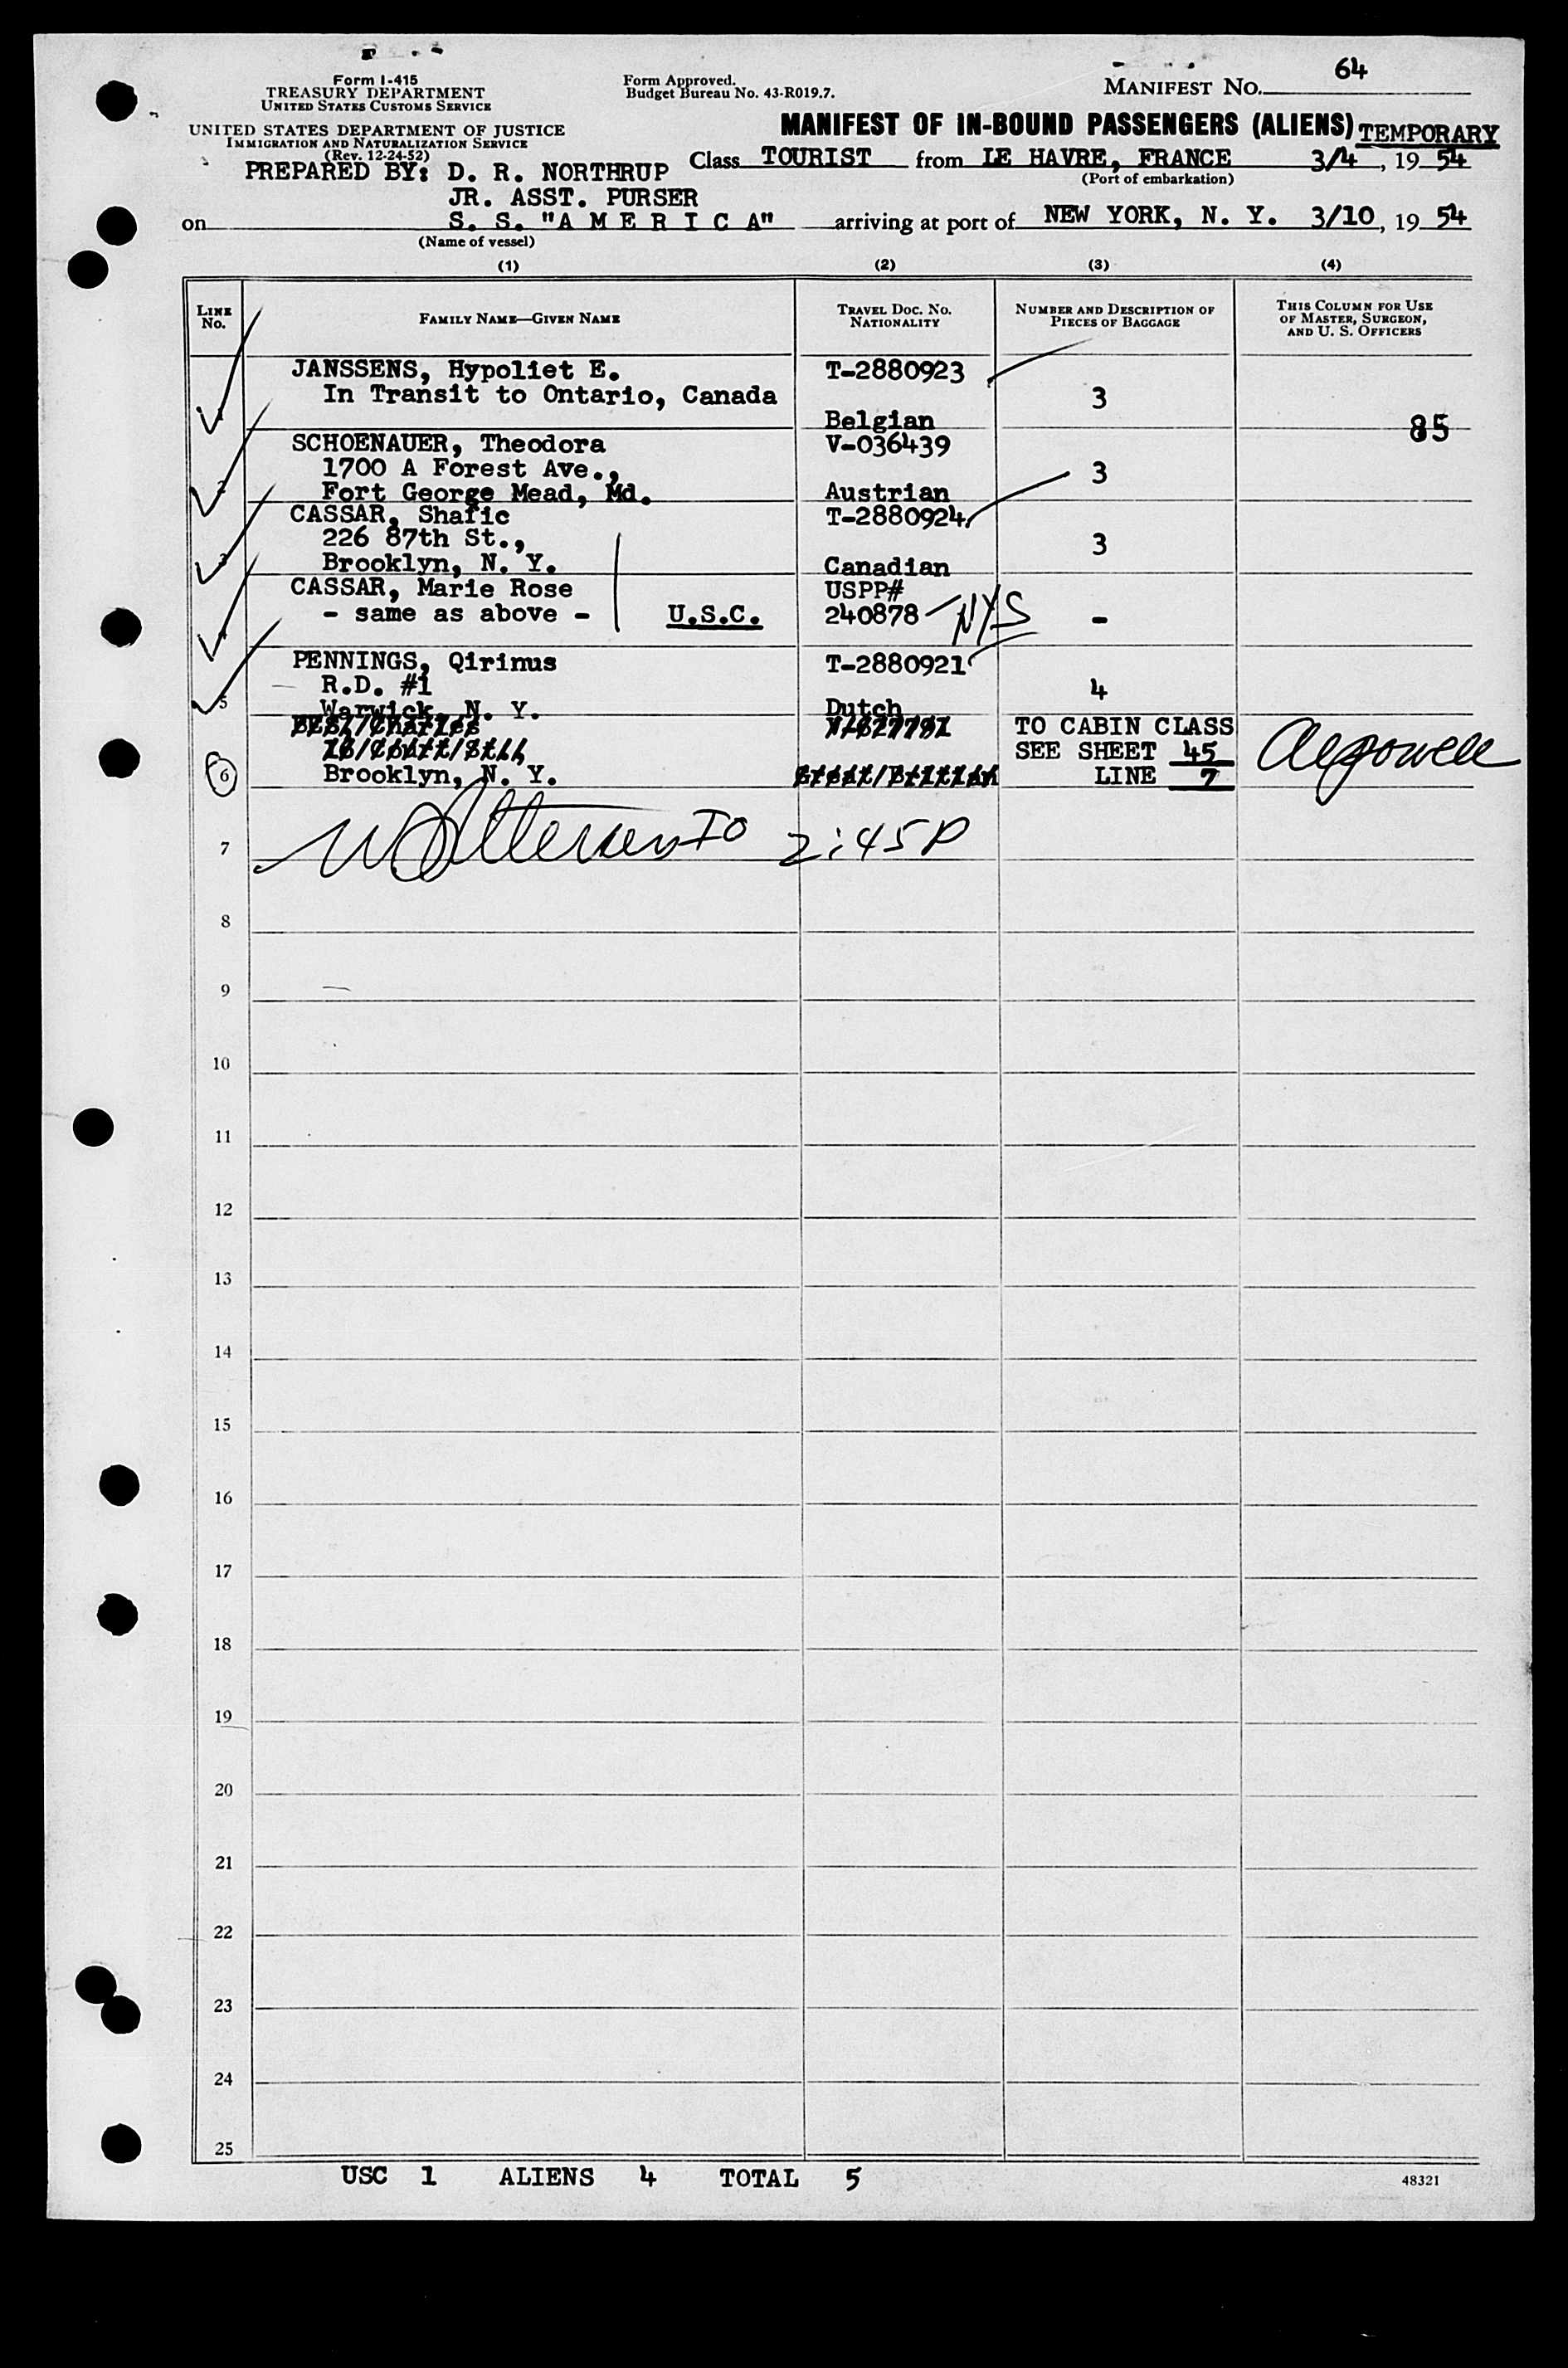 Form I-415
TREASURY DEPARTMENT
UNITED STATES CUSTOMS SERVICE
UNITED STATES DEPARTMENT OF JUSTICE
IMMIGRATION AND NATURALIZATION SERVICE
(Rev. 12-24-52)
Form Approved.
Budget Bureau No. 43-R019.7.
MANIFEST NO. 64
MANIFEST OF IN-BOUND PASSENGERS (ALIENS) TEMPORARY
PREPARED BY: D. R. NORTHRUP
JR. ASST. PURSER
Class TOURIST from LE HAVRE, FRANCE 3/4, 19 54
(Port of embarkation)
on S. S. "A M E R I C A" arriving at port of NEW YORK, N. Y. 3/10, 19 54
(Name of vessel)
(1) (2) (3) (4)
LINE No. FAMILY NAME—GIVEN NAME TRAVEL DOC. NO. NATIONALITY NUMBER AND DESCRIPTION OF PIECES OF BAGGAGE THIS COLUMN FOR USE OF MASTER, SURGEON, AND U. S. OFFICERS
JANSSENS, Hypoliet E. T-2880923
In Transit to Ontario, Canada 3
1 Belgian 85
SCHOENAUER, Theodora V-036439
1700 A Forest Ave., 3
2 Fort George Mead, Md. Austrian
CASSAR, Shafic T-2880924
226 87th St., 3
3 Brooklyn, N. Y. Canadian
CASSAR, Marie Rose USPP#
- same as above - U.S.C. 240878 NYS -
4
PENNINGS, Qirinus T-2880921
R.D. #1 4
5 Warwick, N. Y. Dutch
Charles TO CABIN CLASS
SEE SHEET 45
6 Brooklyn, N. Y. LINE 7
7 IO 2:45 P
8
9
10
11
12
13
14
15
16
17
18
19
20
21
22
23
24
25
USC 1 ALIENS 4 TOTAL 5
48321